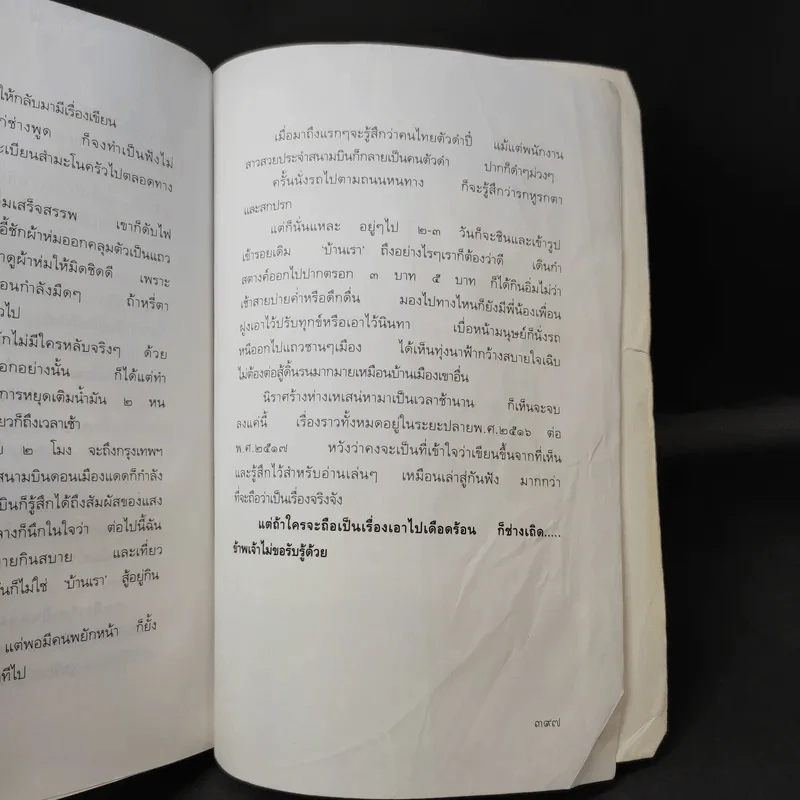 ให้กลับมามีเรื่องเขียน
ก่ช่างพูด ก็จงทำเป็นฟังไม่
ะเบียนสำมะโนครัวไปตลอดทาง
มเสร็จสรรพ เขาก็ดับไฟ
อี้ชักผ้าห่มออกคลุมตัวเป็นแถว
าดูผ้าห่มให้มิดชิดดี เพราะ
อนกำลังมืดๆ ถ้าหรี่ตา
วไป
ักไม่มีใครหลับจริงๆ ด้วย
อกอย่างนั้น ก็ได้แต่ทำ
การหยุดเติมน้ำมัน ๒ หน
ยวก็ถึงเวลาเช้า
๒ โมง จะถึงกรุงเทพฯ
สนามบินดอนเมืองแดดก็กำลัง
บินก็รู้สึกได้ถึงสัมผัสของแสง
างก็นึกในใจว่า ต่อไปนี้ฉัน
ายกินสบาย และเที่ยว
ันก็ไม่ใช่ 'บ้านเรา' สู้อยู่กิน
แต่พอมีคนพยักหน้า ก็ยั้ง
ทีไป
เมื่อมาถึงแรกๆจะรู้สึกว่าคนไทยตัวดำปี๋ แม้แต่พนักงาน
สาวสวยประจำสนามบินก็กลายเป็นคนตัวดำ ปากก็ดำๆม่วงๆ
ครั้นนั่งรถไปตามถนนหนทาง ก็จะรู้สึกว่ารกหูรกตา
และสกปรก
แต่ก็นั่นแหละ อยู่ๆไป ๒-๓ วันก็จะชินและเข้ารูป
เข้ารอยเดิม 'บ้านเรา' ถึงอย่างไรๆเราก็ต้องว่าดี เดินกำ
สตางค์ออกไปปากตรอก ๓ บาท ๕ บาท ก็ได้กินอิ่มไม่ว่า
เช้าสายบ่ายค่ำหรือดึกดื่น มองไปทางไหนก็ยังมีพี่น้องเพื่อน
ฝูงเอาไว้ปรับทุกข์หรือเอาไว้นินทา เบื่อหน้ามนุษย์ก็นั่งรถ
หนีออกไปแถวชานๆเมือง ได้เห็นทุ่งนาฟ้ากว้างสบายใจเฉิบ
ไม่ต้องต่อสู้ดิ้นรนมากมายเหมือนบ้านเมืองเขาอื่น
นิราศร้างห่างเหเสน่หามาเป็นเวลาช้านาน ก็เห็นจะจบ
ลงแค่นี้ เรื่องราวทั้งหมดอยู่ในระยะปลายพ.ศ.๒๕๑๖ ต่อ
พ.ศ.๒๕๑๗ หวังว่าคงจะเป็นที่เข้าใจว่าเขียนขึ้นจากที่เห็น
และรู้สึกไว้สำหรับอ่านเล่นๆ เหมือนเล่าสู่กันฟัง มากกว่า
ที่จะถือว่าเป็นเรื่องจริงจัง
แต่ถ้าใครจะถือเป็นเรื่องเอาไปเดือดร้อน ก็ช่างเถิด.....
ข้าพเจ้าไม่ขอรับรู้ด้วย
๓๙๗